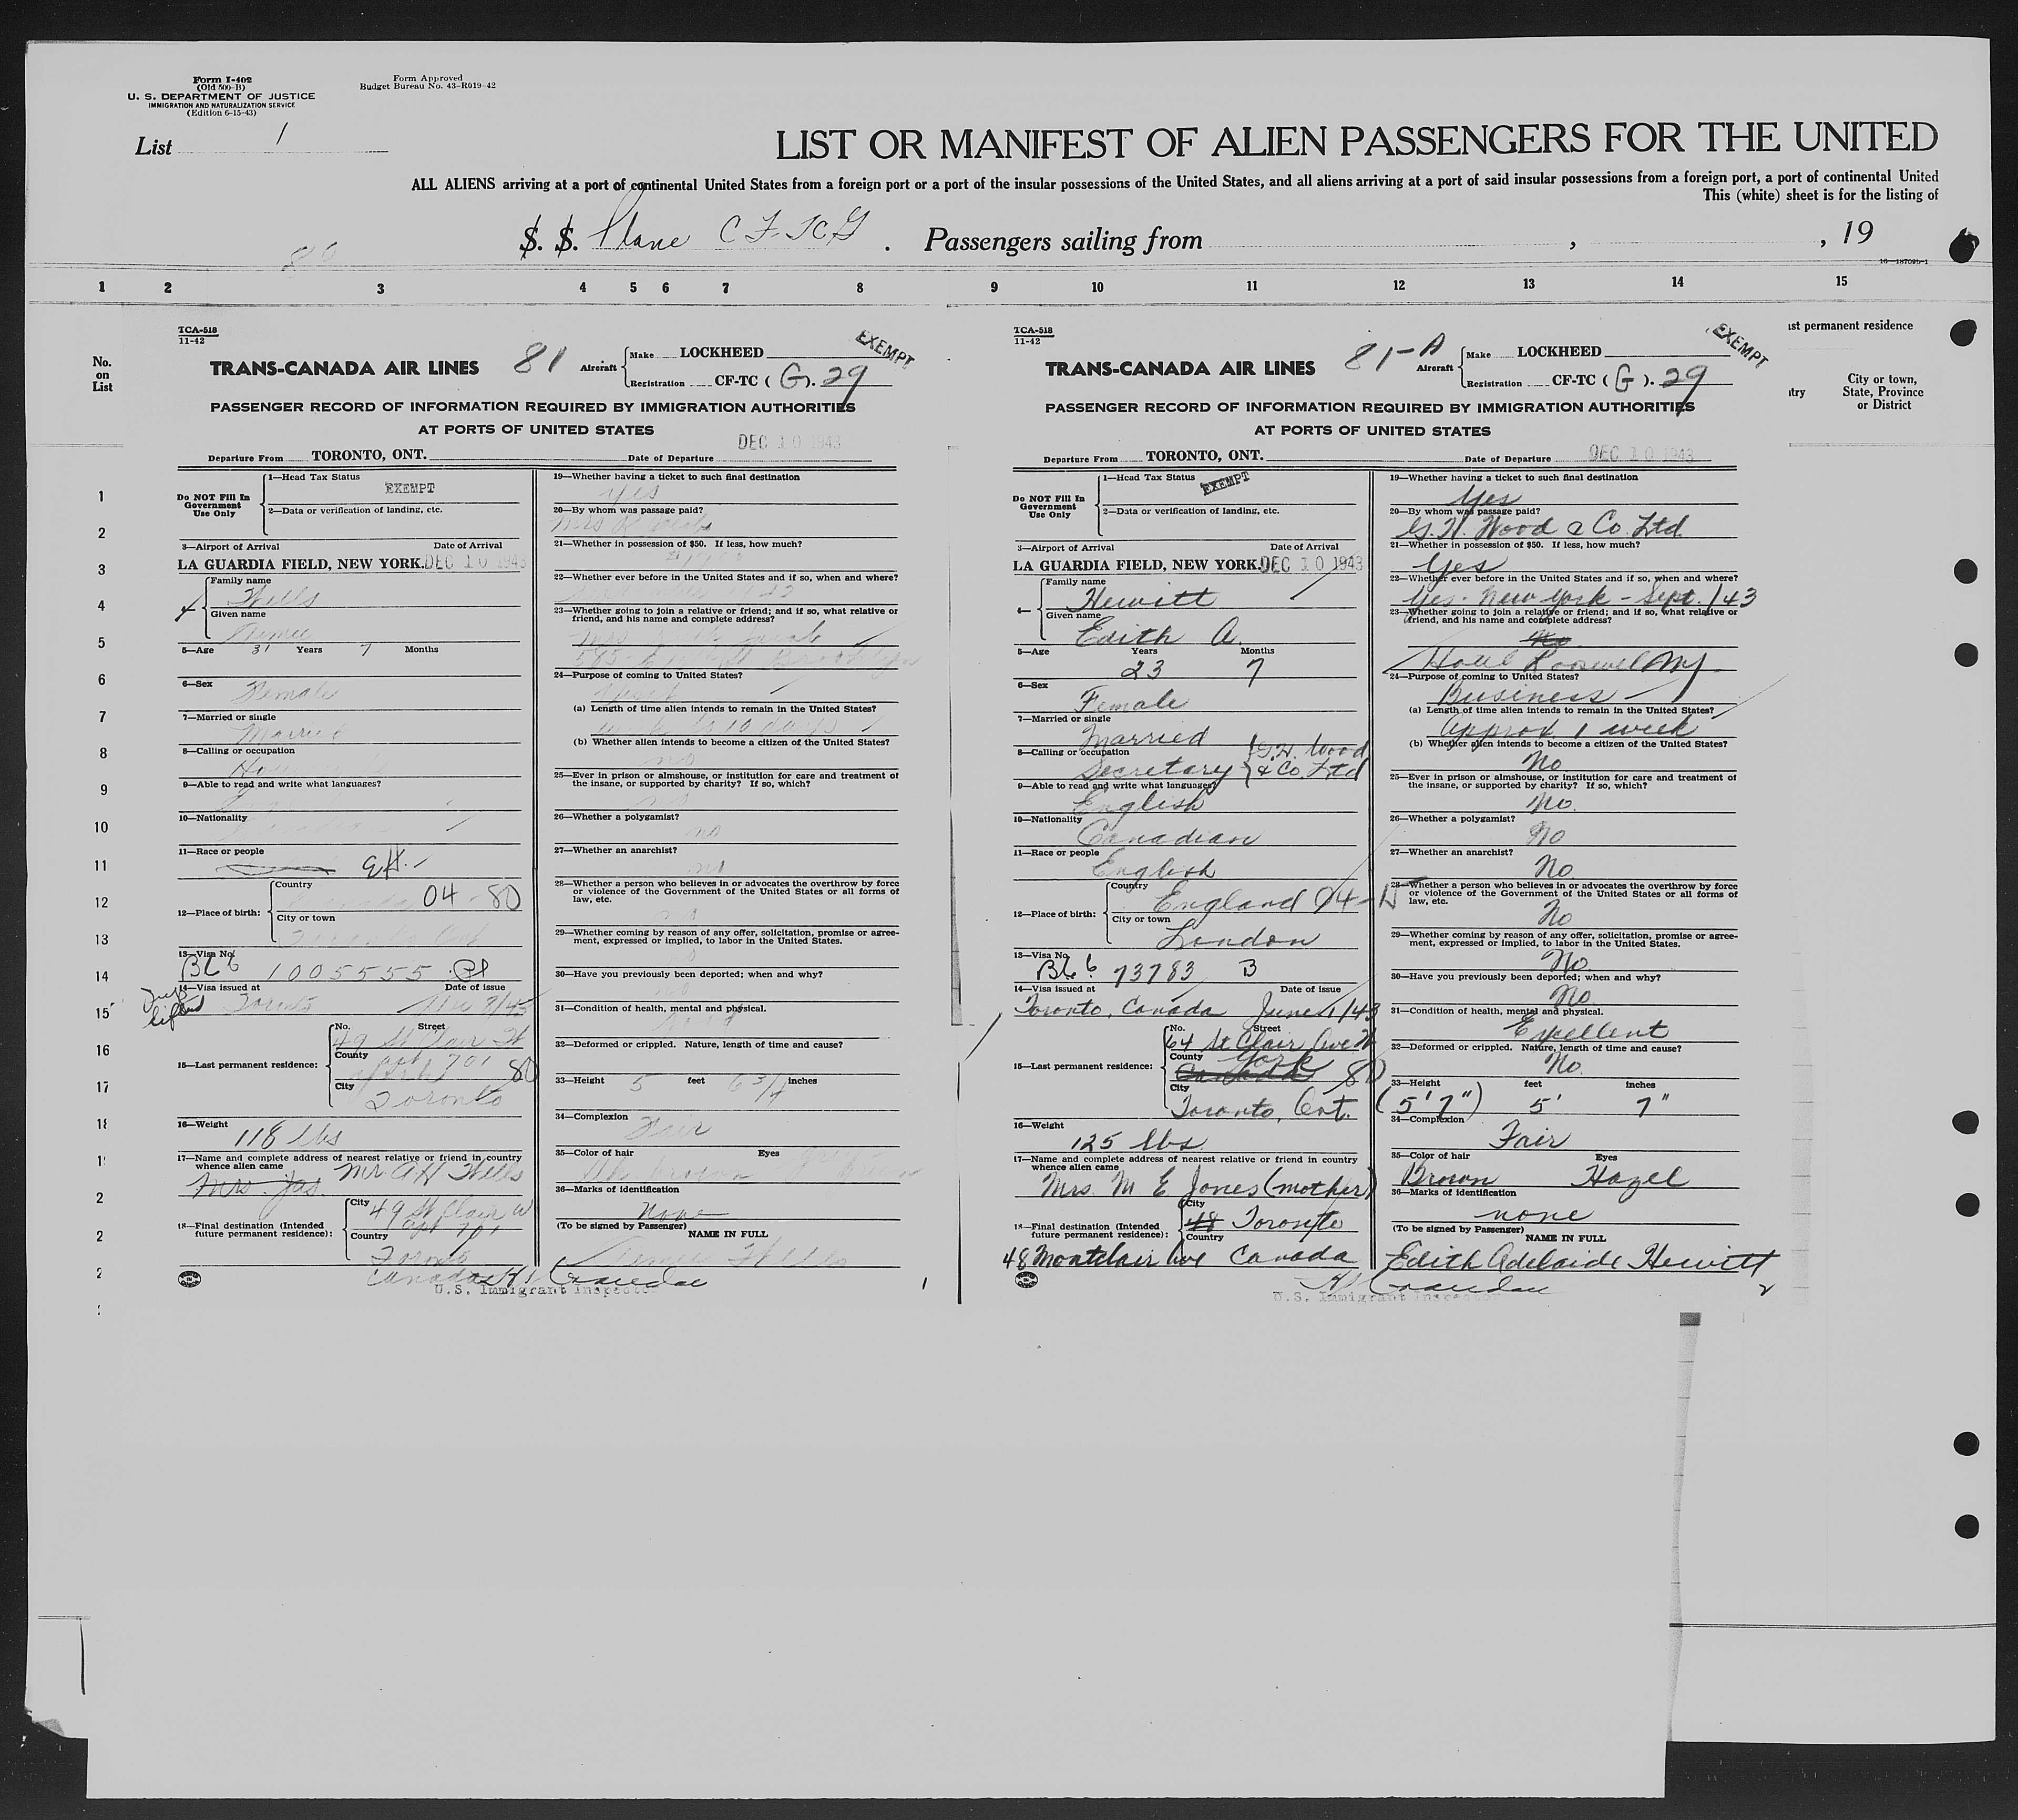 Form I-402
(Old 500-B)
U. S. DEPARTMENT OF JUSTICE
IMMIGRATION AND NATURALIZATION SERVICE
(Edition 6-15-43)
Form Approved
Budget Bureau No. 43-R019-42
List 1
LIST OR MANIFEST OF ALIEN PASSENGERS FOR THE UNITED
ALL ALIENS arriving at a port of continental United States from a foreign port or a port of the insular possessions of the United States, and all aliens arriving at a port of said insular possessions from a foreign port, a port of continental United
This (white) sheet is for the listing of
S. S. Plane CF-TCG. Passengers sailing from , , 19
1 2 3 4 5 6 7 8 9 10 11 12 13 14 15
No.
on
List
1
2
3
4
5
6
7
8
9
10
11
12
13
14
15
16
17
TCA-518
11-42
TRANS-CANADA AIR LINES 81
Aircraft
Make LOCKHEED
Registration CF-TC (G). 29
EXEMPT
PASSENGER RECORD OF INFORMATION REQUIRED BY IMMIGRATION AUTHORITIES
AT PORTS OF UNITED STATES
DEC 10 1943
Departure From TORONTO, ONT. Date of Departure
Do NOT Fill In
Government
Use Only
1—Head Tax Status
EXEMPT
2—Data or verification of landing, etc.
3—Airport of Arrival Date of Arrival
LA GUARDIA FIELD, NEW YORK. DEC 10 1943
4—
Family name
Wells
Given name
Aimee
5—Age 31 Years 7 Months
6—Sex
Female
7—Married or single
Married
8—Calling or occupation
9—Able to read and write what languages?
10—Nationality
11—Race or people
12—Place of birth:
Country
04-80
City or town
Toronto Ont
13—Visa No.
BC6 1005555
14—Visa issued at Date of issue
Toronto
15—Last permanent residence:
No. Street
49 St Clair W
County
apt 701
York 80
City
Toronto
16—Weight
118 lbs
17—Name and complete address of nearest relative or friend in country
whence alien came
Mr. A H Wells
Mrs. Jas.
18—Final destination (Intended
future permanent residence):
City
49 St Clair W
apt 701
Country
Toronto
Canada
U.S. Immigrant Inspector
19—Whether having a ticket to such final destination
yes
20—By whom was passage paid?
21—Whether in possession of $50. If less, how much?
22—Whether ever before in the United States and if so, when and where?
23—Whether going to join a relative or friend; and if so, what relative or
friend, and his name and complete address?
Brooklyn
24—Purpose of coming to United States?
(a) Length of time alien intends to remain in the United States?
10 days
(b) Whether alien intends to become a citizen of the United States?
no
25—Ever in prison or almshouse, or institution for care and treatment of
the insane, or supported by charity? If so, which?
no
26—Whether a polygamist?
no
27—Whether an anarchist?
no
28—Whether a person who believes in or advocates the overthrow by force
or violence of the Government of the United States or all forms of
law, etc.
no
29—Whether coming by reason of any offer, solicitation, promise or agree-
ment, expressed or implied, to labor in the United States.
30—Have you previously been deported; when and why?
no
31—Condition of health, mental and physical.
32—Deformed or crippled. Nature, length of time and cause?
33—Height 5 feet 6 3/4 inches
34—Complexion
Fair
35—Color of hair Eyes
36—Marks of identification
none
(To be signed by Passenger) NAME IN FULL
Aimee Wells
1
TCA-518
11-42
TRANS-CANADA AIR LINES 81-A
Aircraft
Make LOCKHEED
Registration CF-TC (G). 29
EXEMPT
PASSENGER RECORD OF INFORMATION REQUIRED BY IMMIGRATION AUTHORITIES
AT PORTS OF UNITED STATES
Departure From TORONTO, ONT. Date of Departure DEC 10 1943
Do NOT Fill In
Government
Use Only
1—Head Tax Status
EXEMPT
2—Data or verification of landing, etc.
3—Airport of Arrival Date of Arrival
LA GUARDIA FIELD, NEW YORK. DEC 10 1943
4—
Family name
Hewitt
Given name
Edith A.
5—Age Years Months
23 7
6—Sex
Female
7—Married or single
Married
8—Calling or occupation
Secretary G.H. Wood & Co. Ltd
9—Able to read and write what languages?
English
10—Nationality
Canadian
11—Race or people
English
12—Place of birth:
Country
England
City or town
London
13—Visa No.
BC6 73783 B
14—Visa issued at Date of issue
Toronto, Canada June 1/43
15—Last permanent residence:
No. Street
64 St Clair Ave W
County
York
Canada 80
City
Toronto, Ont.
16—Weight
125 lbs
17—Name and complete address of nearest relative or friend in country
whence alien came
Mrs. M E Jones (mother)
18—Final destination (Intended
future permanent residence):
City
48 Toronto
Country
48 Montclair Ave Canada
U.S. Immigrant Inspector
19—Whether having a ticket to such final destination
Yes
20—By whom was passage paid?
G. H. Wood & Co. Ltd.
21—Whether in possession of $50. If less, how much?
Yes
22—Whether ever before in the United States and if so, when and where?
Yes - New York - Sept. /43
23—Whether going to join a relative or friend; and if so, what relative or
friend, and his name and complete address?
No
24—Purpose of coming to United States?
Business
(a) Length of time alien intends to remain in the United States?
Approx. 1 week
(b) Whether alien intends to become a citizen of the United States?
No
25—Ever in prison or almshouse, or institution for care and treatment of
the insane, or supported by charity? If so, which?
No.
26—Whether a polygamist?
No
27—Whether an anarchist?
No
28—Whether a person who believes in or advocates the overthrow by force
or violence of the Government of the United States or all forms of
law, etc.
No
29—Whether coming by reason of any offer, solicitation, promise or agree-
ment, expressed or implied, to labor in the United States.
No.
30—Have you previously been deported; when and why?
No.
31—Condition of health, mental and physical.
Excellent
32—Deformed or crippled. Nature, length of time and cause?
No.
33—Height feet inches
(5'7") 5' 7"
34—Complexion
Fair
35—Color of hair Eyes
Brown Hazel
36—Marks of identification
none
(To be signed by Passenger) NAME IN FULL
Edith Adelaide Hewitt
2
ast permanent residence
City or town,
State, Province
or District